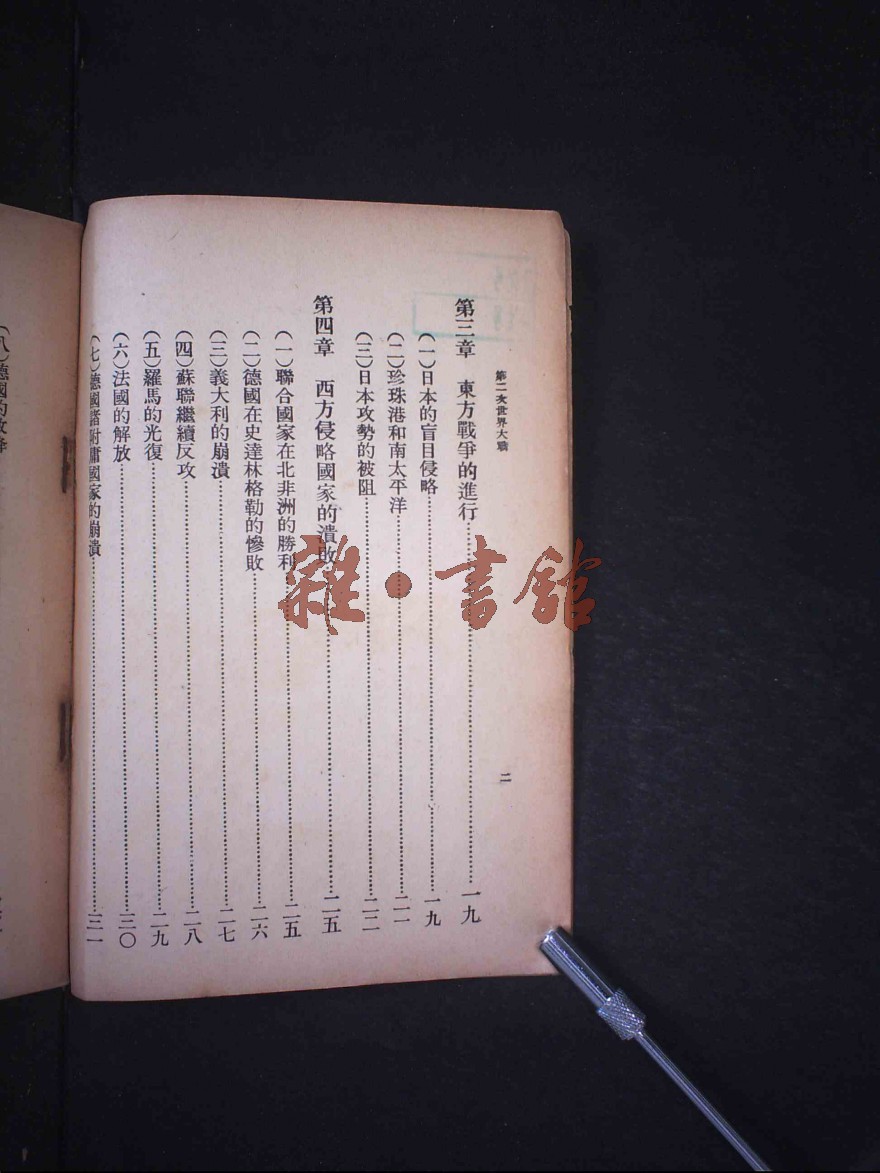 第二次世界大戰
第三章　東方戰爭的進行…………一九
（一）日本的盲目侵略…………一九
（二）珍珠港和南太平洋…………二一
（三）日本攻勢的被阻…………二二
第四章　西方侵略國家的潰敗…………二五
（一）聯合國家在北非洲的勝利…………二五
（二）德國在史達林格勒的慘敗…………二六
（三）義大利的崩潰…………二七
（四）蘇聯繼續反攻…………二八
（五）羅馬的光復…………二九
（六）法國的解放…………三〇
（七）德國諸附庸國家的崩潰…………三一
二
（八）德國的敗降
雜·書館